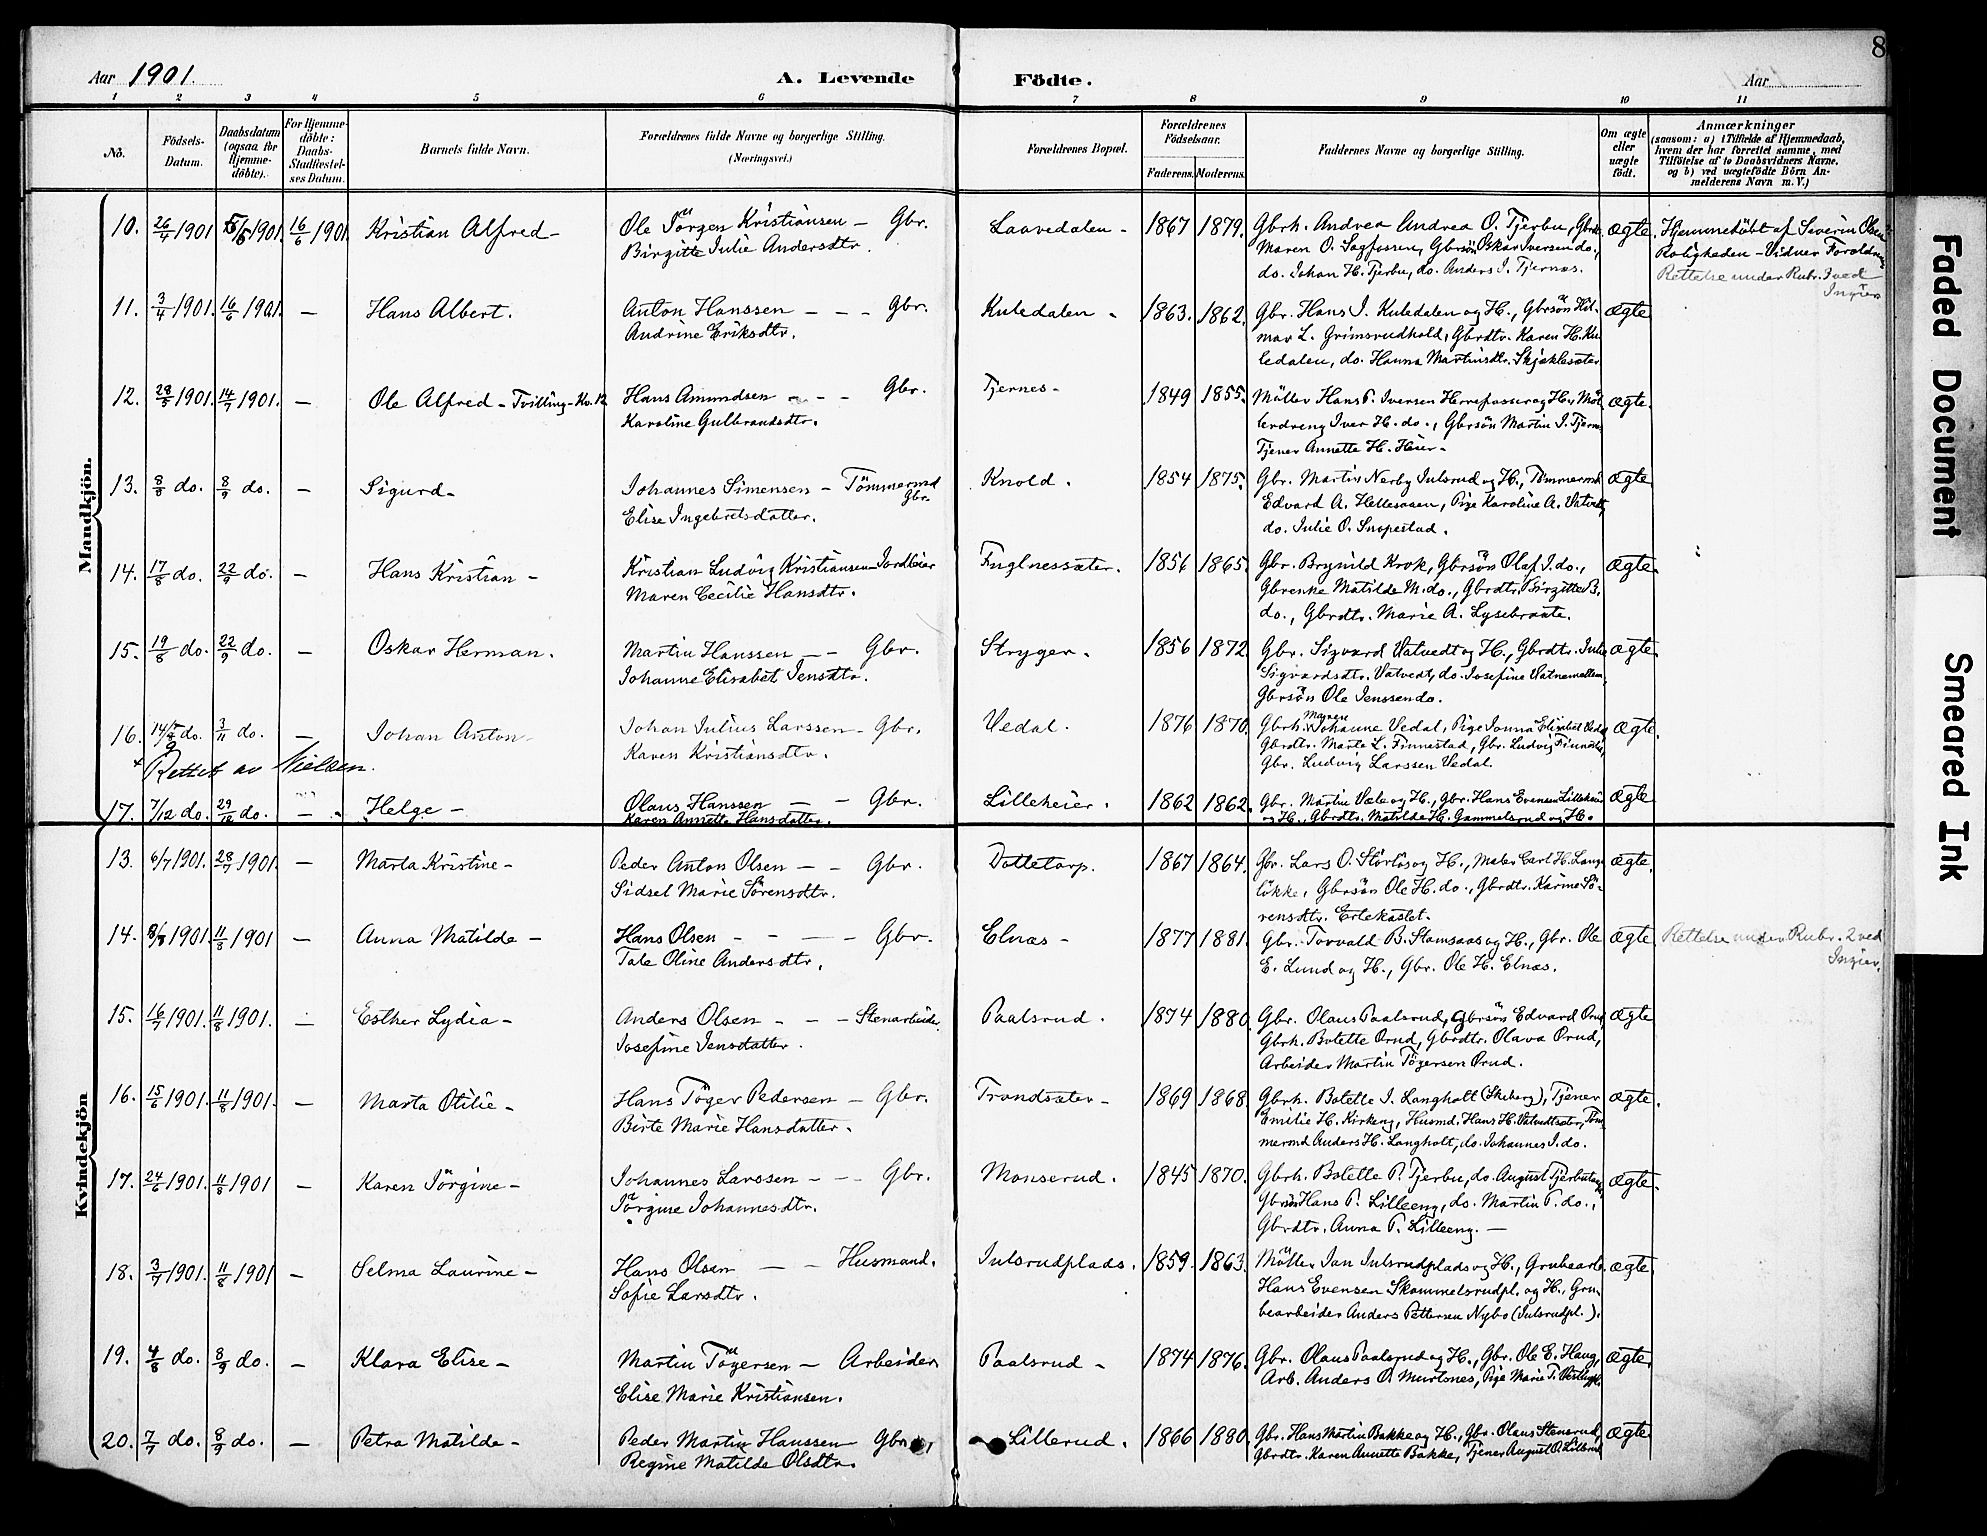 8
Aar 1901.
A. Levende Födte.
Aar
1 2 3 4 5 6 7 8 9 10 11
No.
Födsels-Datum.
Daabsdatum (ogsaa for Hjemme-döbte).
For Hjemme-döbte: Daabs-Stadfæstel-ses Datum.
Barnets fulde Navn.
Forældrenes fulde Navne og borgerlige Stilling. (Næringsvei.)
Forældrenes Bopæl.
Forældrenes Födselsaar.
Faderens. Moderens.
Faddernes Navne og borgerlige Stilling.
Om ægte eller uægte födt.
Anmærkninger
(saasom: a) i Tilfælde af Hjemmedaab, hvem der har forrettet samme, med Tilföielse af to Daabsvidners Navne, og b) ved uægtefödte Börn An-melderens Navn m. V.)
Mandkjön.
10. 26/4 1901 5/5 1901. 16/6 1901 Kristian Alfred - Ole Jörgen Kristiansen - Gbr. Laavedalen - 1867 1879. Gbrk. Andrea Andrea O. Tjerbu, Gbrk. ægte. Hjemmedöbt af Severin Olsen
Birgitte Julie Andersdtr. Maren O. Sagfossen, Gbrsön Oskar Iversen do, Roligheden - Vidner Forældrene
do. Johan H. Tjerbu, do. Anders I. Tjernæs. Rettelse under Rubr. 3 ved
Ingier
11. 3/4 1901. 16/6 1901. - Hans Albert. Anton Hanssen - - - Gbr. Kuledalen - 1863. 1862. Gbr. Hans J. Kuledalen og H., Gbrsön Hil- ægte
Andrine Eriksdtr. mar L. Grimsrudhold, Gbrdtr. Karen H. Ku-
ledalen, do. Hanna Martinsdtr. Skjæklesæter
12. 28/5 1901. 14/7 1901. - Ole Alfred - Tvilling - Kv. 12 Hans Amundsen - - - Gbr. Tjernes - 1849 1855. Möller Hans P. Iversen Herrefosser og H., Möl- ægte.
Karoline Gulbrandsdtr. lerdreng Iver H. do., Gbrsön Martin I. Tjern.
Tjener Annette H. Heier -
13. 8/8 do. 8/9 do. - Sigurd - Johannes Simensen - Tömmermd Gbr. Knold. 1854 1875. Gbr. Martin Nerby Julsrud og H., Tömmermd ægte
Elise Ingebretsdatter. Edvard A. Hellesaaen, Pige Karoline A. Vatvedt,
do. Julie O. Snopestad.
14. 17/8 do. 22/9 do. - Hans Kristian - Kristian Ludvig Kristiansen - Jordleier Fuglnessæter. 1856 1865. Gbr. Brynild Krok, Gbrsön Olaf I. do., ægte.
Maren Cecilie Hansdtr. Gbrenke Matilde M. do., Gbrdtr. Birgitte B.
do., Gbrdtr. Marie A. Lysebraate.
15. 19/8 do. 22/9 do. - Oskar Herman. Martin Hanssen - - Gbr. Stryger. 1856 1872. Gbr. Sigvard Vatvedt og H., Gbrdtr. Julie ægte.
Johanne Elisabet Jensdtr. Sigvardsdtr. Vatvedt, do. Josefine Vatnemellem,
Gbrsön Ole Jenssen do.
16. 14/9 do. 3/11 do. - Johan Anton - Johan Julius Larssen - Gbr. Vedal. 1876 1870. Gbrk. Maren Johanne Vedal, Pige Jonna Elisabet Vedal ægte.
Karen Kristiansdtr. Gbrdtr. Marte L. Finnestad, Gbr. Ludvig Finnestad,
Rettet av Nielsen. Gbr. Ludvig Larssen Vedal.
17. 7/12 do. 29/12 do. - Helge - Olaus Hanssen - - Gbr. Lilleheier. 1862 1862. Gbr. Martin Væle og H., Gbr. Hans Evensen Lilleheier ægte
Karen Annette Hansdatter. og H., Gbrdtr. Matilde H. Gammelsrud og H.
Kvindekjön
13. 6/7 1901. 28/7 1901. - Marta Kristine - Peder Anton Olsen - - Gbr. Dottetorp. 1867 1864. Gbr. Lars O. Störlös og H., Maler Carl H. Lang- ægte.
Sidsel Marie Sörensdtr. lökke, Gbrsön Ole H. do., Gbrdtr. Karine Sö-
rensdtr. Ertekastet.
14. 8/7 1901 11/8 1901 - Anna Matilde - Hans Olsen - - - Gbr. Elnæs - 1877 1881. Gbr. Torvald B. Stamsaas og H., Gbr. Ole ægte Rettelse under Rubr. 2 ved
Tale Oline Andersdtr. E. Lund og H., Gbr. Ole H. Elnæs. Ingier.
15. 16/7 1901. 11/8 1901. - Esther Lydia - Anders Olsen - - - Stenarbeider Paalsrud. 1874 1880. Gbr. Olaus Paalsrud, Gbrsön Edvard Ørud, ægte
Josefine Jensdatter. Gbrk. Botette Ørud, Gbrdtr. Olava Ørud,
Arbeider Martin Tögersen Ørud.
16. 15/6 1901. 11/8 1901. - Marta Otilie - Hans Töger Pedersen - Gbr. Trandsæter - 1869 1868 Gbrk. Botette J. Langholt (Skeberg), Tjener ægte.
Birte Marie Hansdatter. Emilie H. Kirkeng, Husmd. Hans H. Vatvedtsæter, Töm-
mermd Anders H. Langholt, do. Johannes I. do.
17. 24/6 1901. 11/8 1901 - Karen Jörgine - Johannes Larssen - - Gbr. Monserud. 1845 1870. Gbrk. Botette P. Tjerbu, do. August Tjerbutang, ægte.
Jörgine Johannesdtr. Gbrsön Hans P. Lilleeng, do. Martin P. do.,
Gbrdtr. Anna P. Lilleeng. -
18. 3/7 1901. 11/8 1901 - Selma Laurine - Hans Olsen - - Husmand. Julsrudplads. 1859. 1863. Möller Jan Julsrudplads og H., Grubearb. ægte.
Sofie Larsdtr. Hans Evensen Skammelsrudpl. og H., Gru-
bearbeider Anders Pettersen Nybo (Julsrudpl.).
19. 4/8 do. 8/9 do. - Klara Elise - Martin Tögersen - Arbeider Paalsrud - 1874 1876. Gbr. Olaus Paalsrud og H., Gbr. Ole E. Haug, ægte.
Elise Marie Kristiansen. Arb. Anders O. Murtnes, Pige Marie T.
20. 7/7 do. 8/9 do. - Petra Matilde - Peder Martin Hanssen Gbr. Lillerud. 1866 1880. Gbr. Hans Martin Bakke og H., Gbr. Olaus Stensrud, ægte
Regine Matilde Olsdtr. Gbrdtr. Karen Annette Bakke, Tjener August O. Lillerud
Faded Document
Smeared Ink